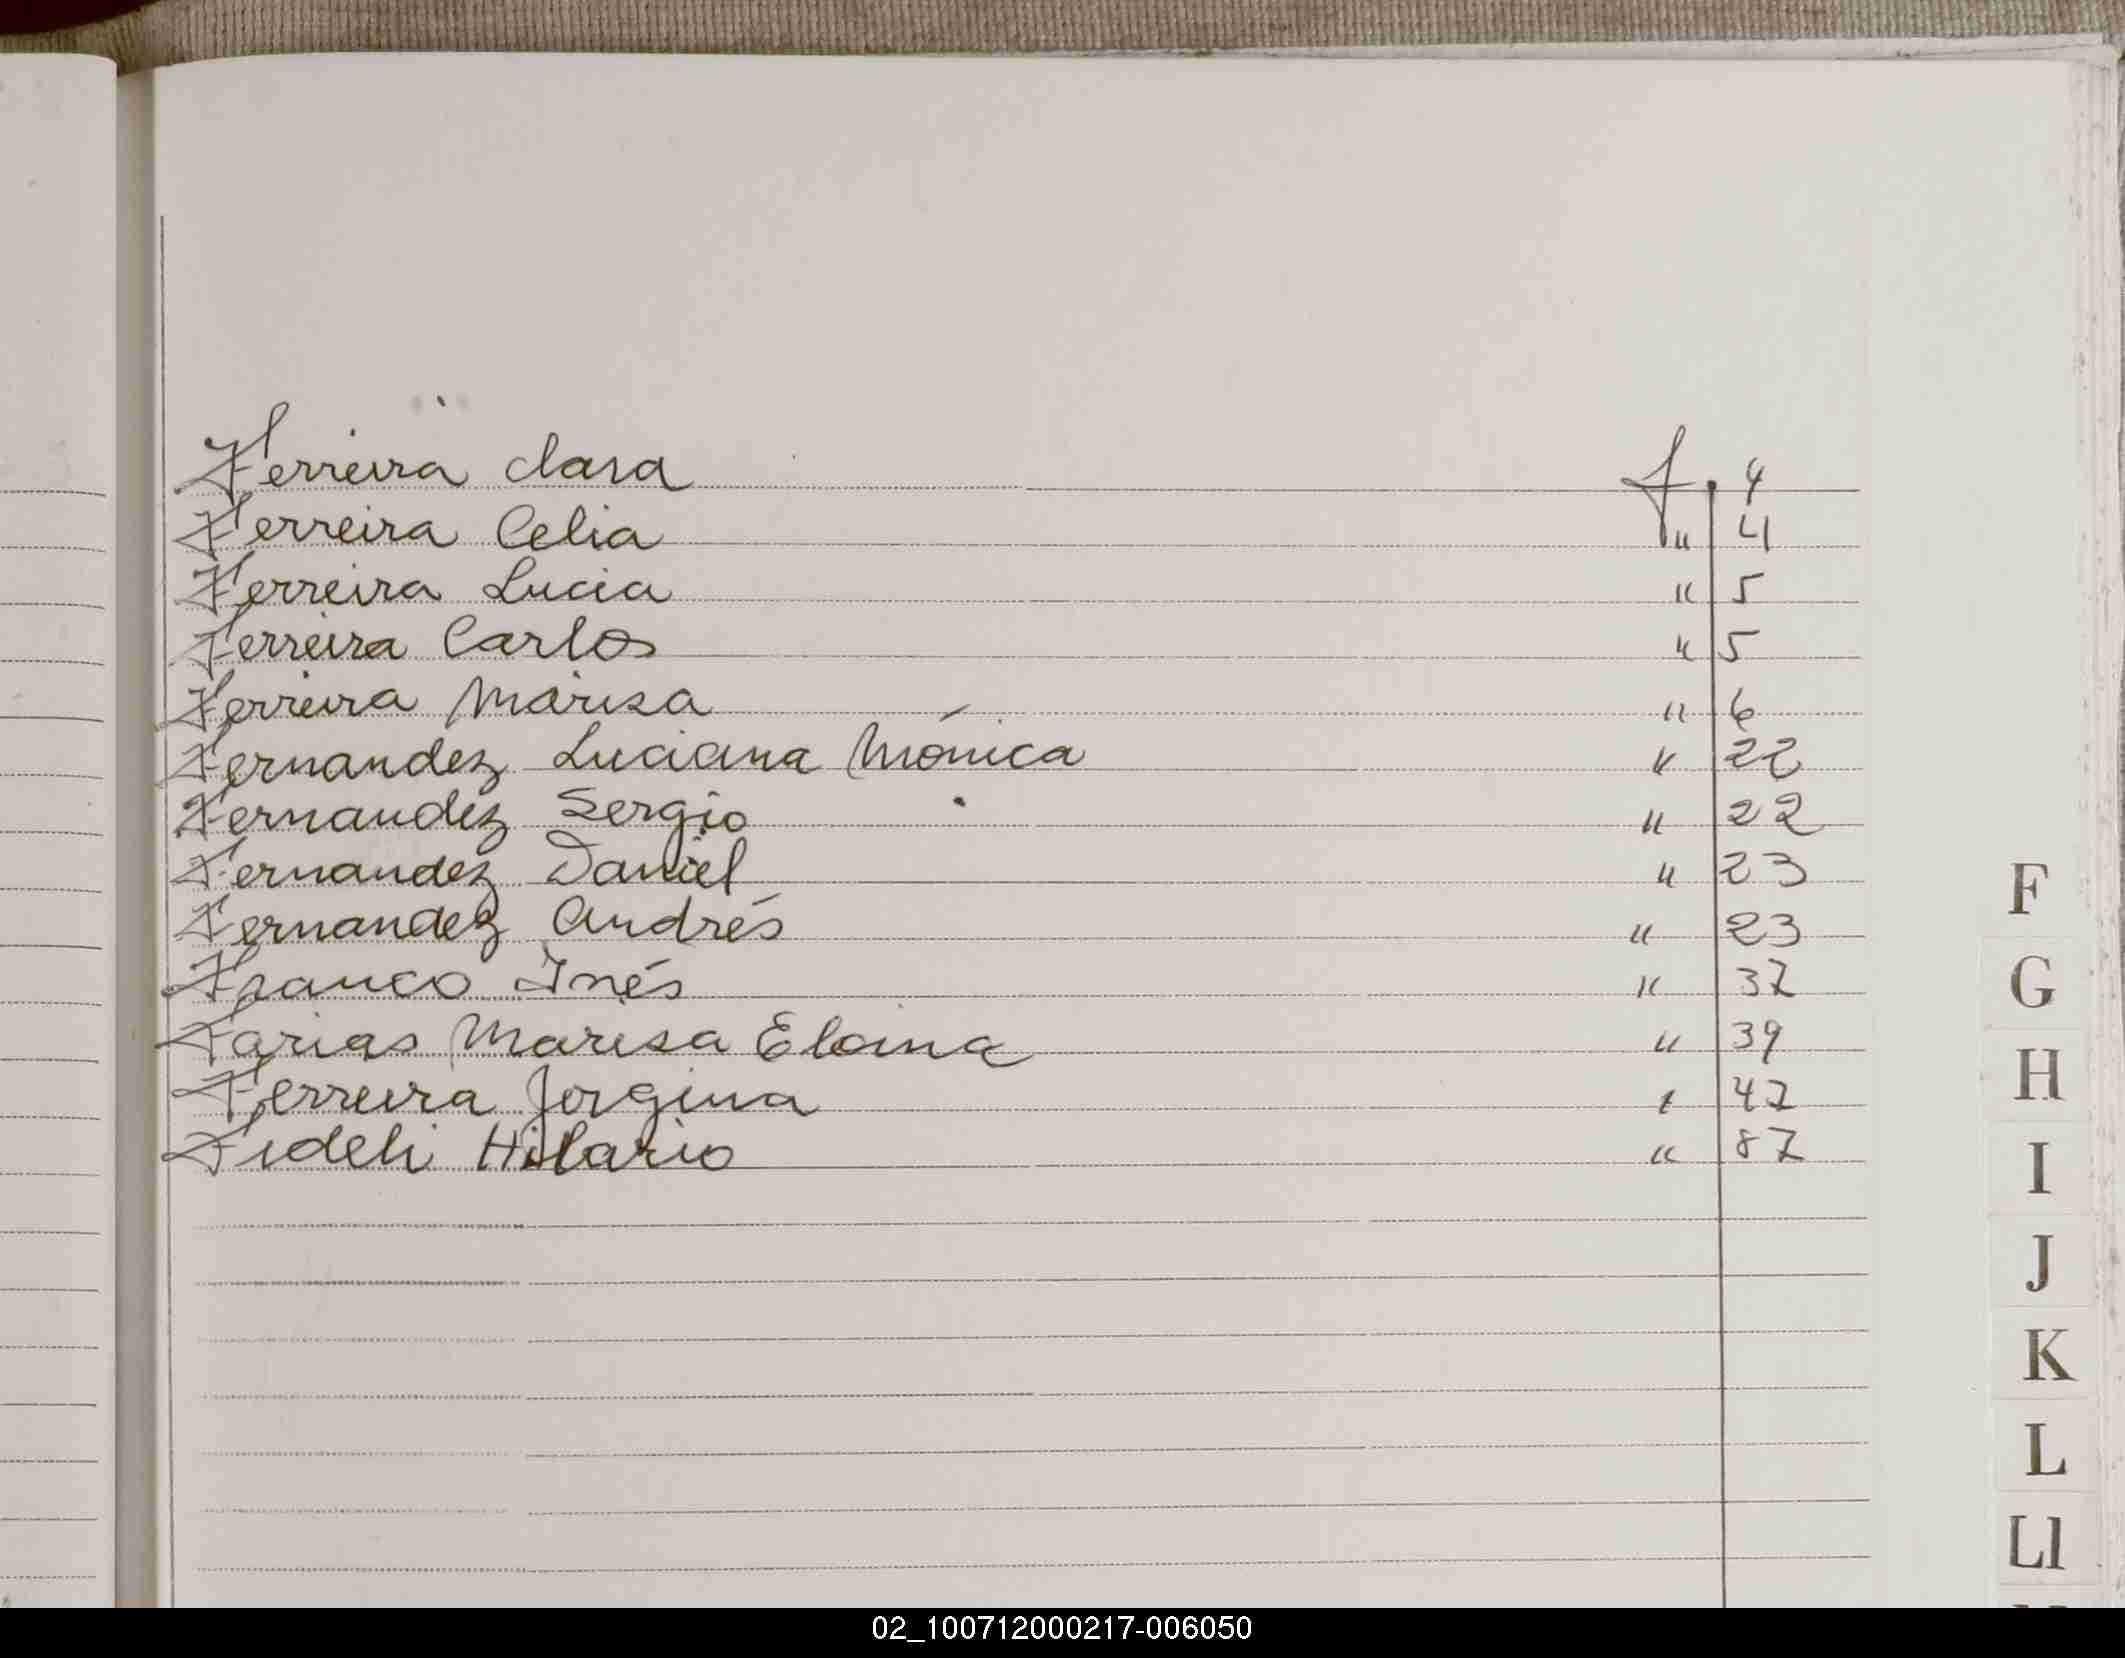 Ferreira Clara f. 4
Ferreira Celia " 4
Ferreira Lucia " 5
Ferreira Carlos " 5
Ferreira Marisa " 6
Fernandez Luciana Mónica " 22
Fernandez Sergio " 22
Fernandez Daniel " 23
Fernandez Andrés " 23
Franco Inés " 37
Farias Marisa Eloina " 39
Ferreira Jorgina " 47
Fideli Hilario " 87
F
G
H
I
J
K
L
Ll
02_100712000217-006050